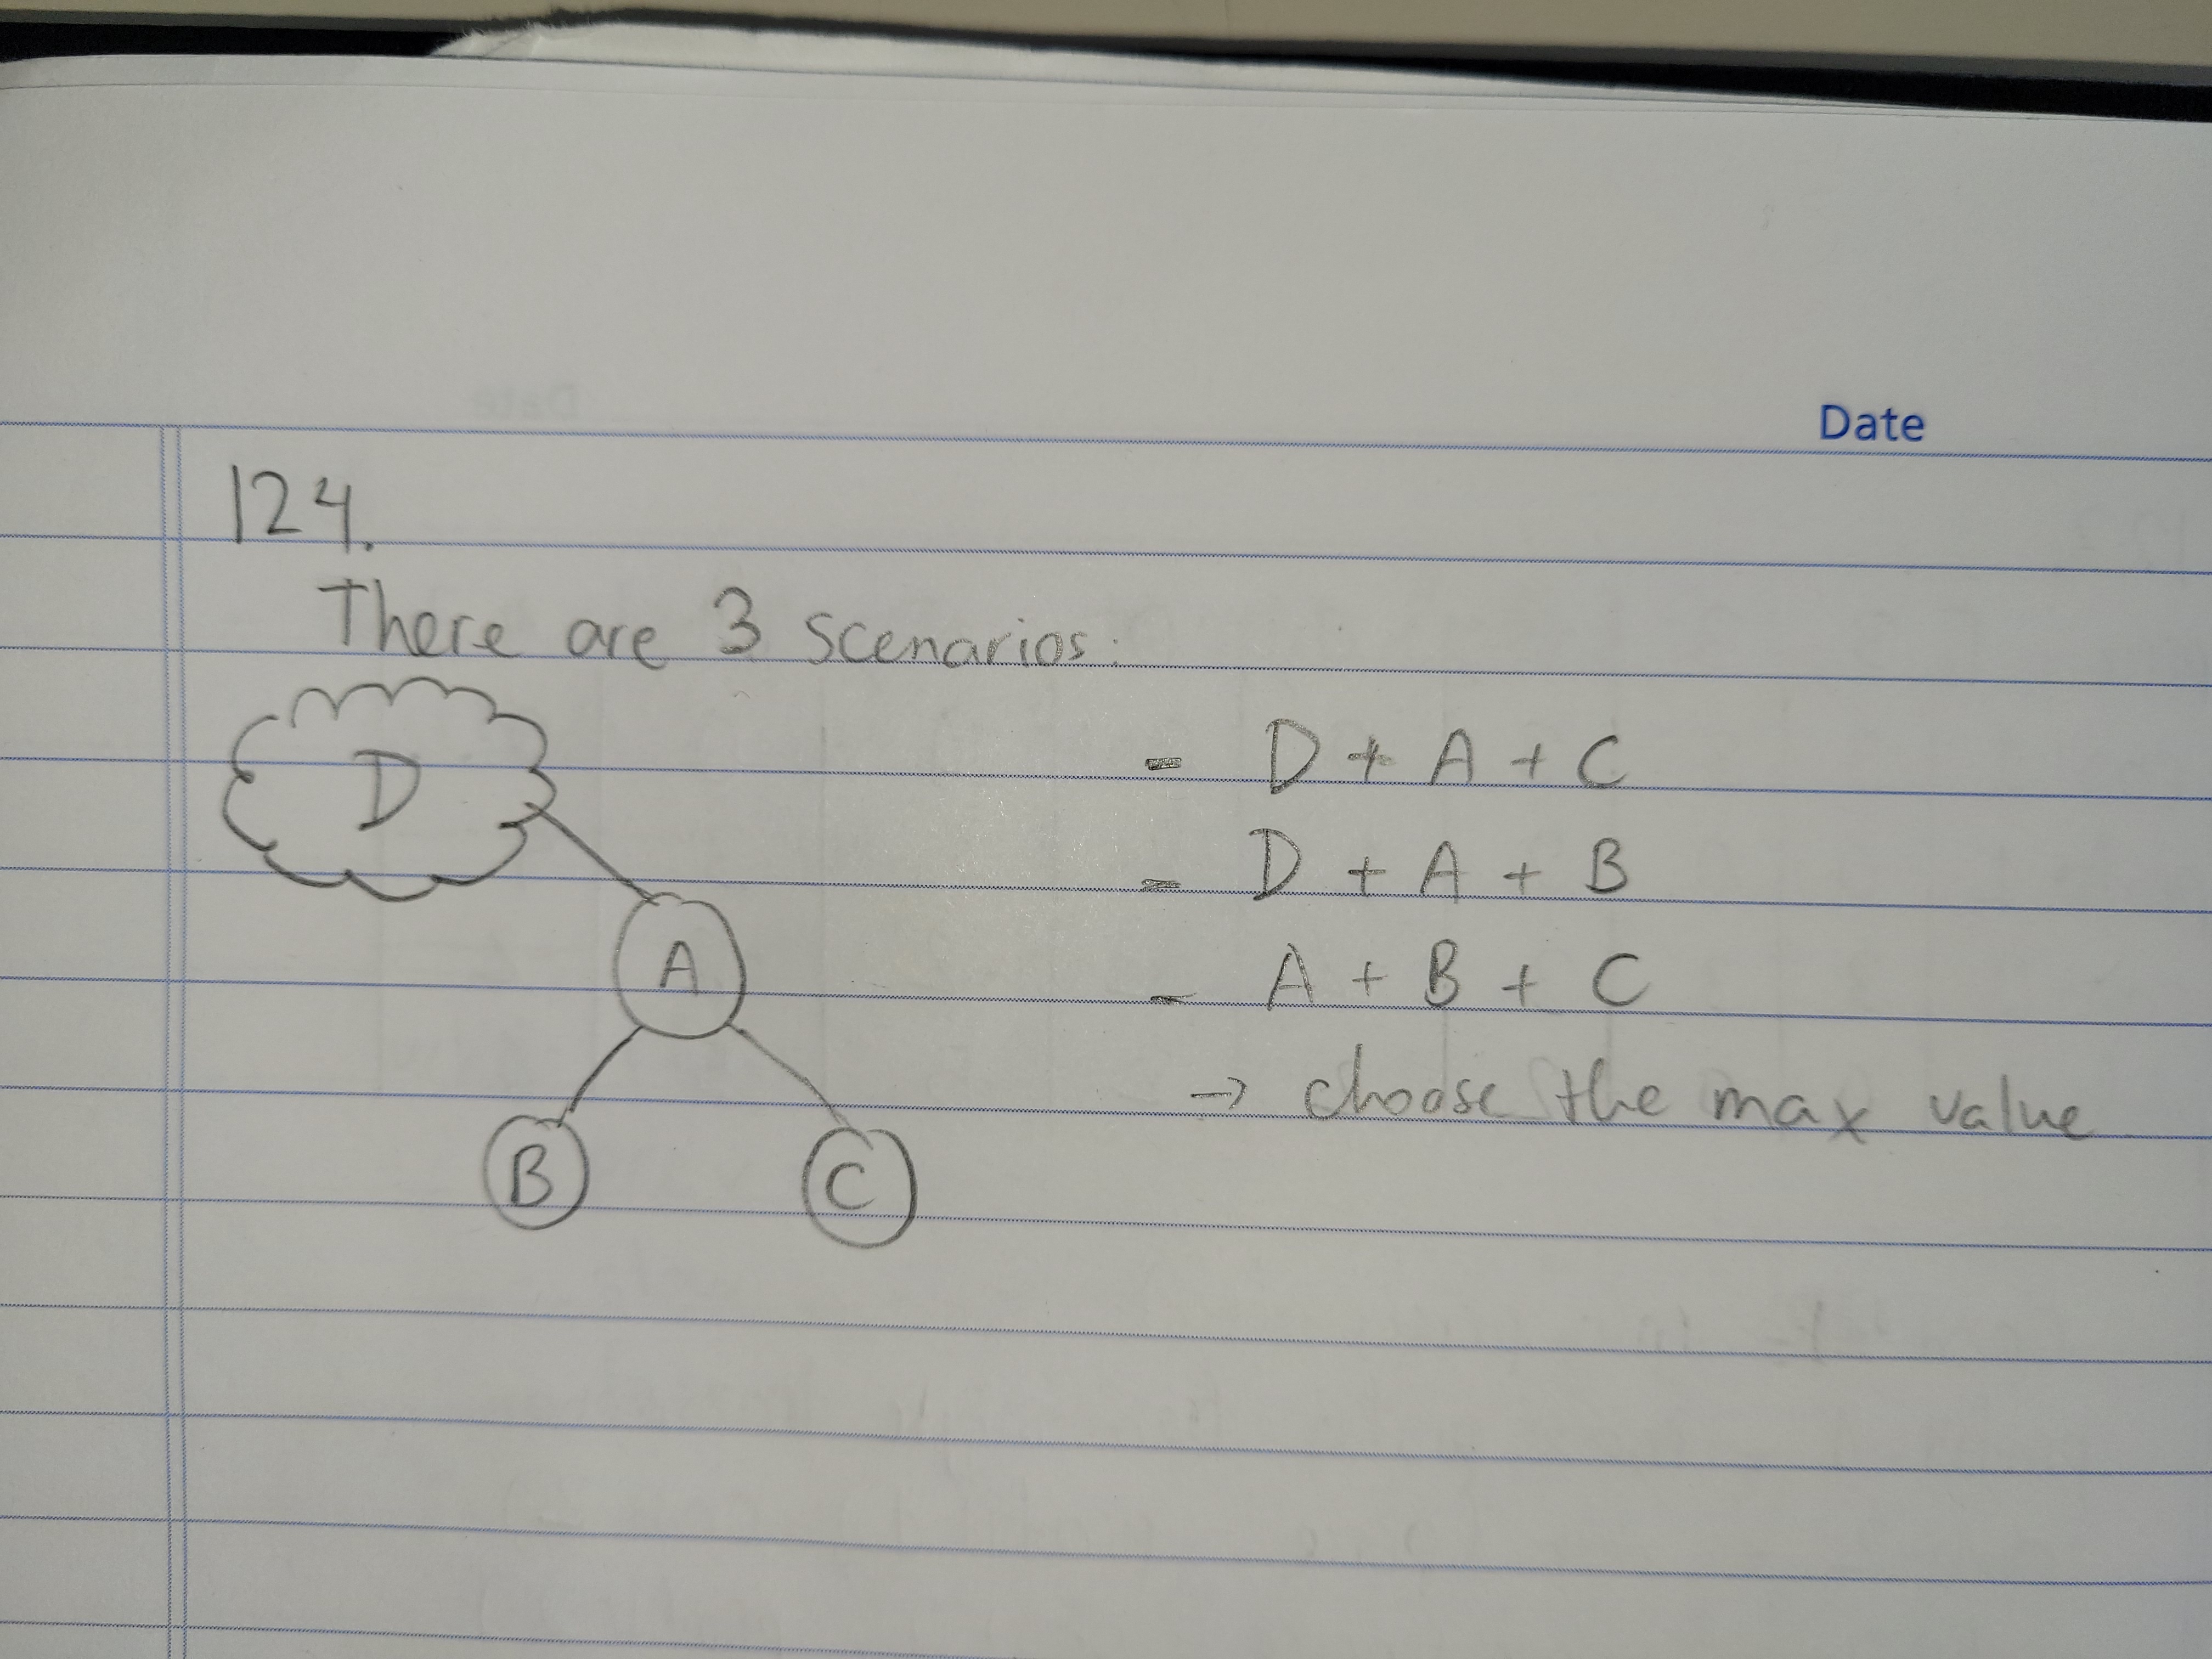 Date
124.
There are 3 scenarios:
D
- D + A + C
- D + A + B
A
- A + B + C
→ choose the max value
B
C